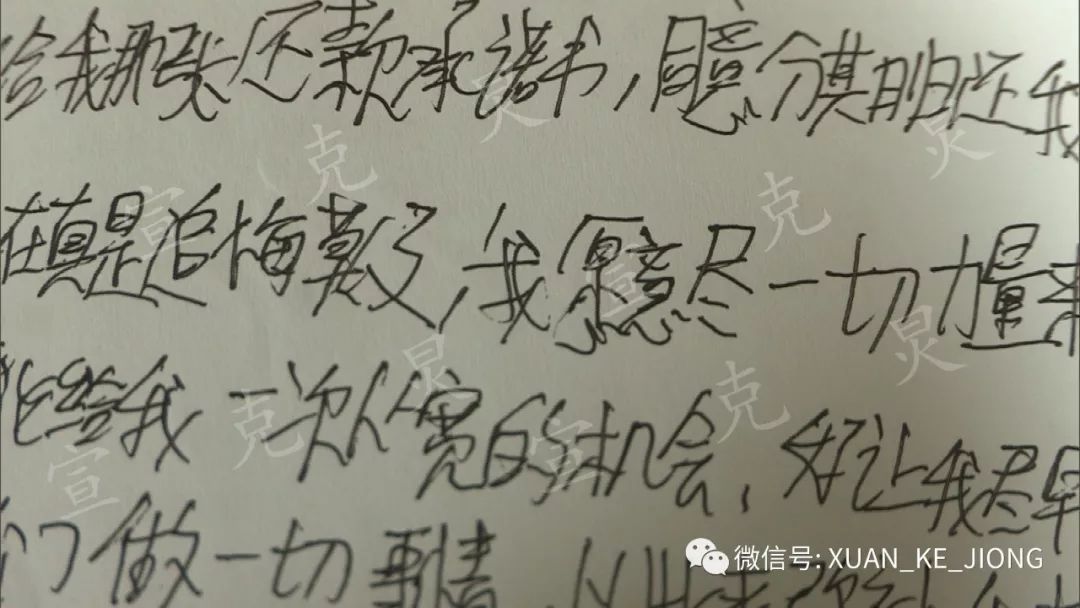 给我那张还款承诺书,同意分期明还我
在真是追悔莫及了,我愿意尽一切力量来
能给我一次从宽的机会,好让我尽早
们做一切事情
宣克炅
微信号: XUAN_KE_JIONG